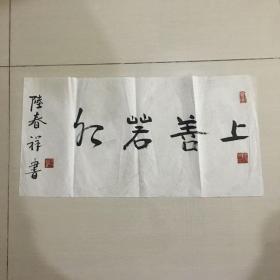 上善若水
陸春祥書